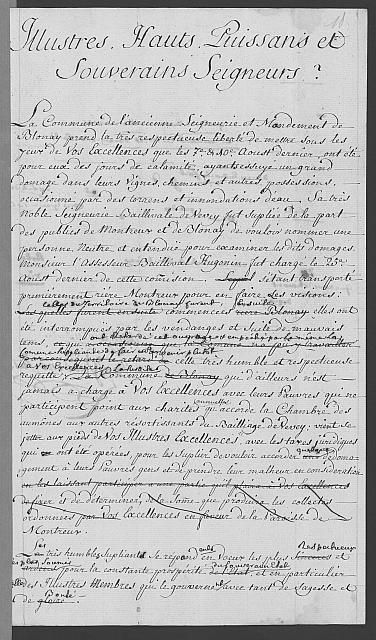 Illustres, Hauts, Puissans et
Souverains Seigneurs ?
La Commune de l'ancienne Seigneurie et Mandement de
Blonay prend la très respectueuse liberté de mettre sous les
yeux de Vos Excellences que les 7e & 10e Aoust dernier, ont été
pour eux des jours de calamité, ayant essuyé un grand
domage dans leurs vignes, chemins et autres possessions,
occasionné par des torrens et innondations d'eau. Sa très
noble Seigneurie Baillivale de Vevey fut supliée de la part
des publics de Montreux et de Blonay de vouloir nommer une
personne Neutre et entendüe pour examiner les dits domages.
Monsieur l'Assesseur Baillival Hugonin fut chargé le 25e
Aoust dernier de cette comission. s'étant transporté
premièrement rière Montreux pour en faire ses visions.
Celles du territoire de Blonay furent ensuite
Lesquelles furent en suite commencées rière Blonay elles ont
été interrompües par les vendanges et suite de mauvais
tems,
à Vos Excellences cette très humble et respectueuse
requête, La Commune de Blonay qui d'ailleurs n'est
jamais à charge à Vos Excellences avec leurs Pauvres qui ne
annuelles
participent point aux charités qu'acorde la Chambre des
aumônes aux autres ressortissants du Bailliage de Vevey, vient se
jetter aux pieds de Vos Illustres Excellences, avec les taxes juridiques
qui ont été opérées, pour les suplier de vouloir acorder quelque dédomagement
à leurs Pauvres gens et de prendre leur malheur en considération
en les laissant participer à une partie qu'il plaira à Vos Excellences
de fixer & de déterminer, de la Some que produira les collectes
ordonnées par Vos Excellences en faveur de la Paroisse de
Montreux.
Les très humbles Supliants se répandent en Voeux les plus sinceres et
respectueux
pour la constante prospérité de l'Etat, et en particulier
du Souverain Etat
des Illustres Membres qui le gouvernent avec tant de Sagesse et
de gloire.
Bonté